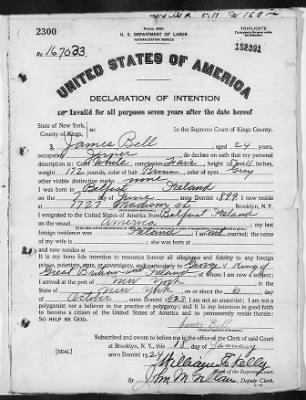 2300
Form 2203
U. S. DEPARTMENT OF LABOR
NATURALIZATION SERVICE
TRIPLICATE
No. 167033
152391
UNITED STATES OF AMERICA
DECLARATION OF INTENTION
Invalid for all purposes seven years after the date hereof
State of New York,
County of Kings,
In the Supreme Court of Kings County.
I, James Bell, aged 24 years,
occupation, do declare on oath that my personal
description is: Color White, complexion Fair, height 5 feet inches,
weight 172 pounds, color of hair Brown, color of eyes Grey
other visible distinctive marks none
I was born in Belfast Ireland
on the 7 day of June, anno Domini 1899; I now reside
at 1727 Madison st, Brooklyn, N. Y.
I emigrated to the United States of America from Belfast Ireland
on the vessel America; my last
foreign residence was Ireland; I am not married; the name
of my is; was born at
and now resides at
It is my bona fide intention to renounce forever all allegiance and fidelity to any foreign
prince, potentate, state, or sovereignty, and particularly to George V King of
Great Britain and Ireland, of whom I am now a subject;
I arrived at the port of New York, in the
State of New York, on or about the 6 day
of October, anno Domini 1923; I am not an anarchist; I am not a
polygamist nor a believer in the practice of polygamy; and it is my intention in good faith
to become a citizen of the United States of America and to permanently reside therein:
SO HELP ME GOD.
James Bell
Subscribed and sworn to before me in the office of the Clerk of said Court
at Brooklyn, N. Y., this 18 day of January
[SEAL] anno Domini 1924
William E. Kelly
Clerk of the Supreme Court.
By, Deputy Clerk.